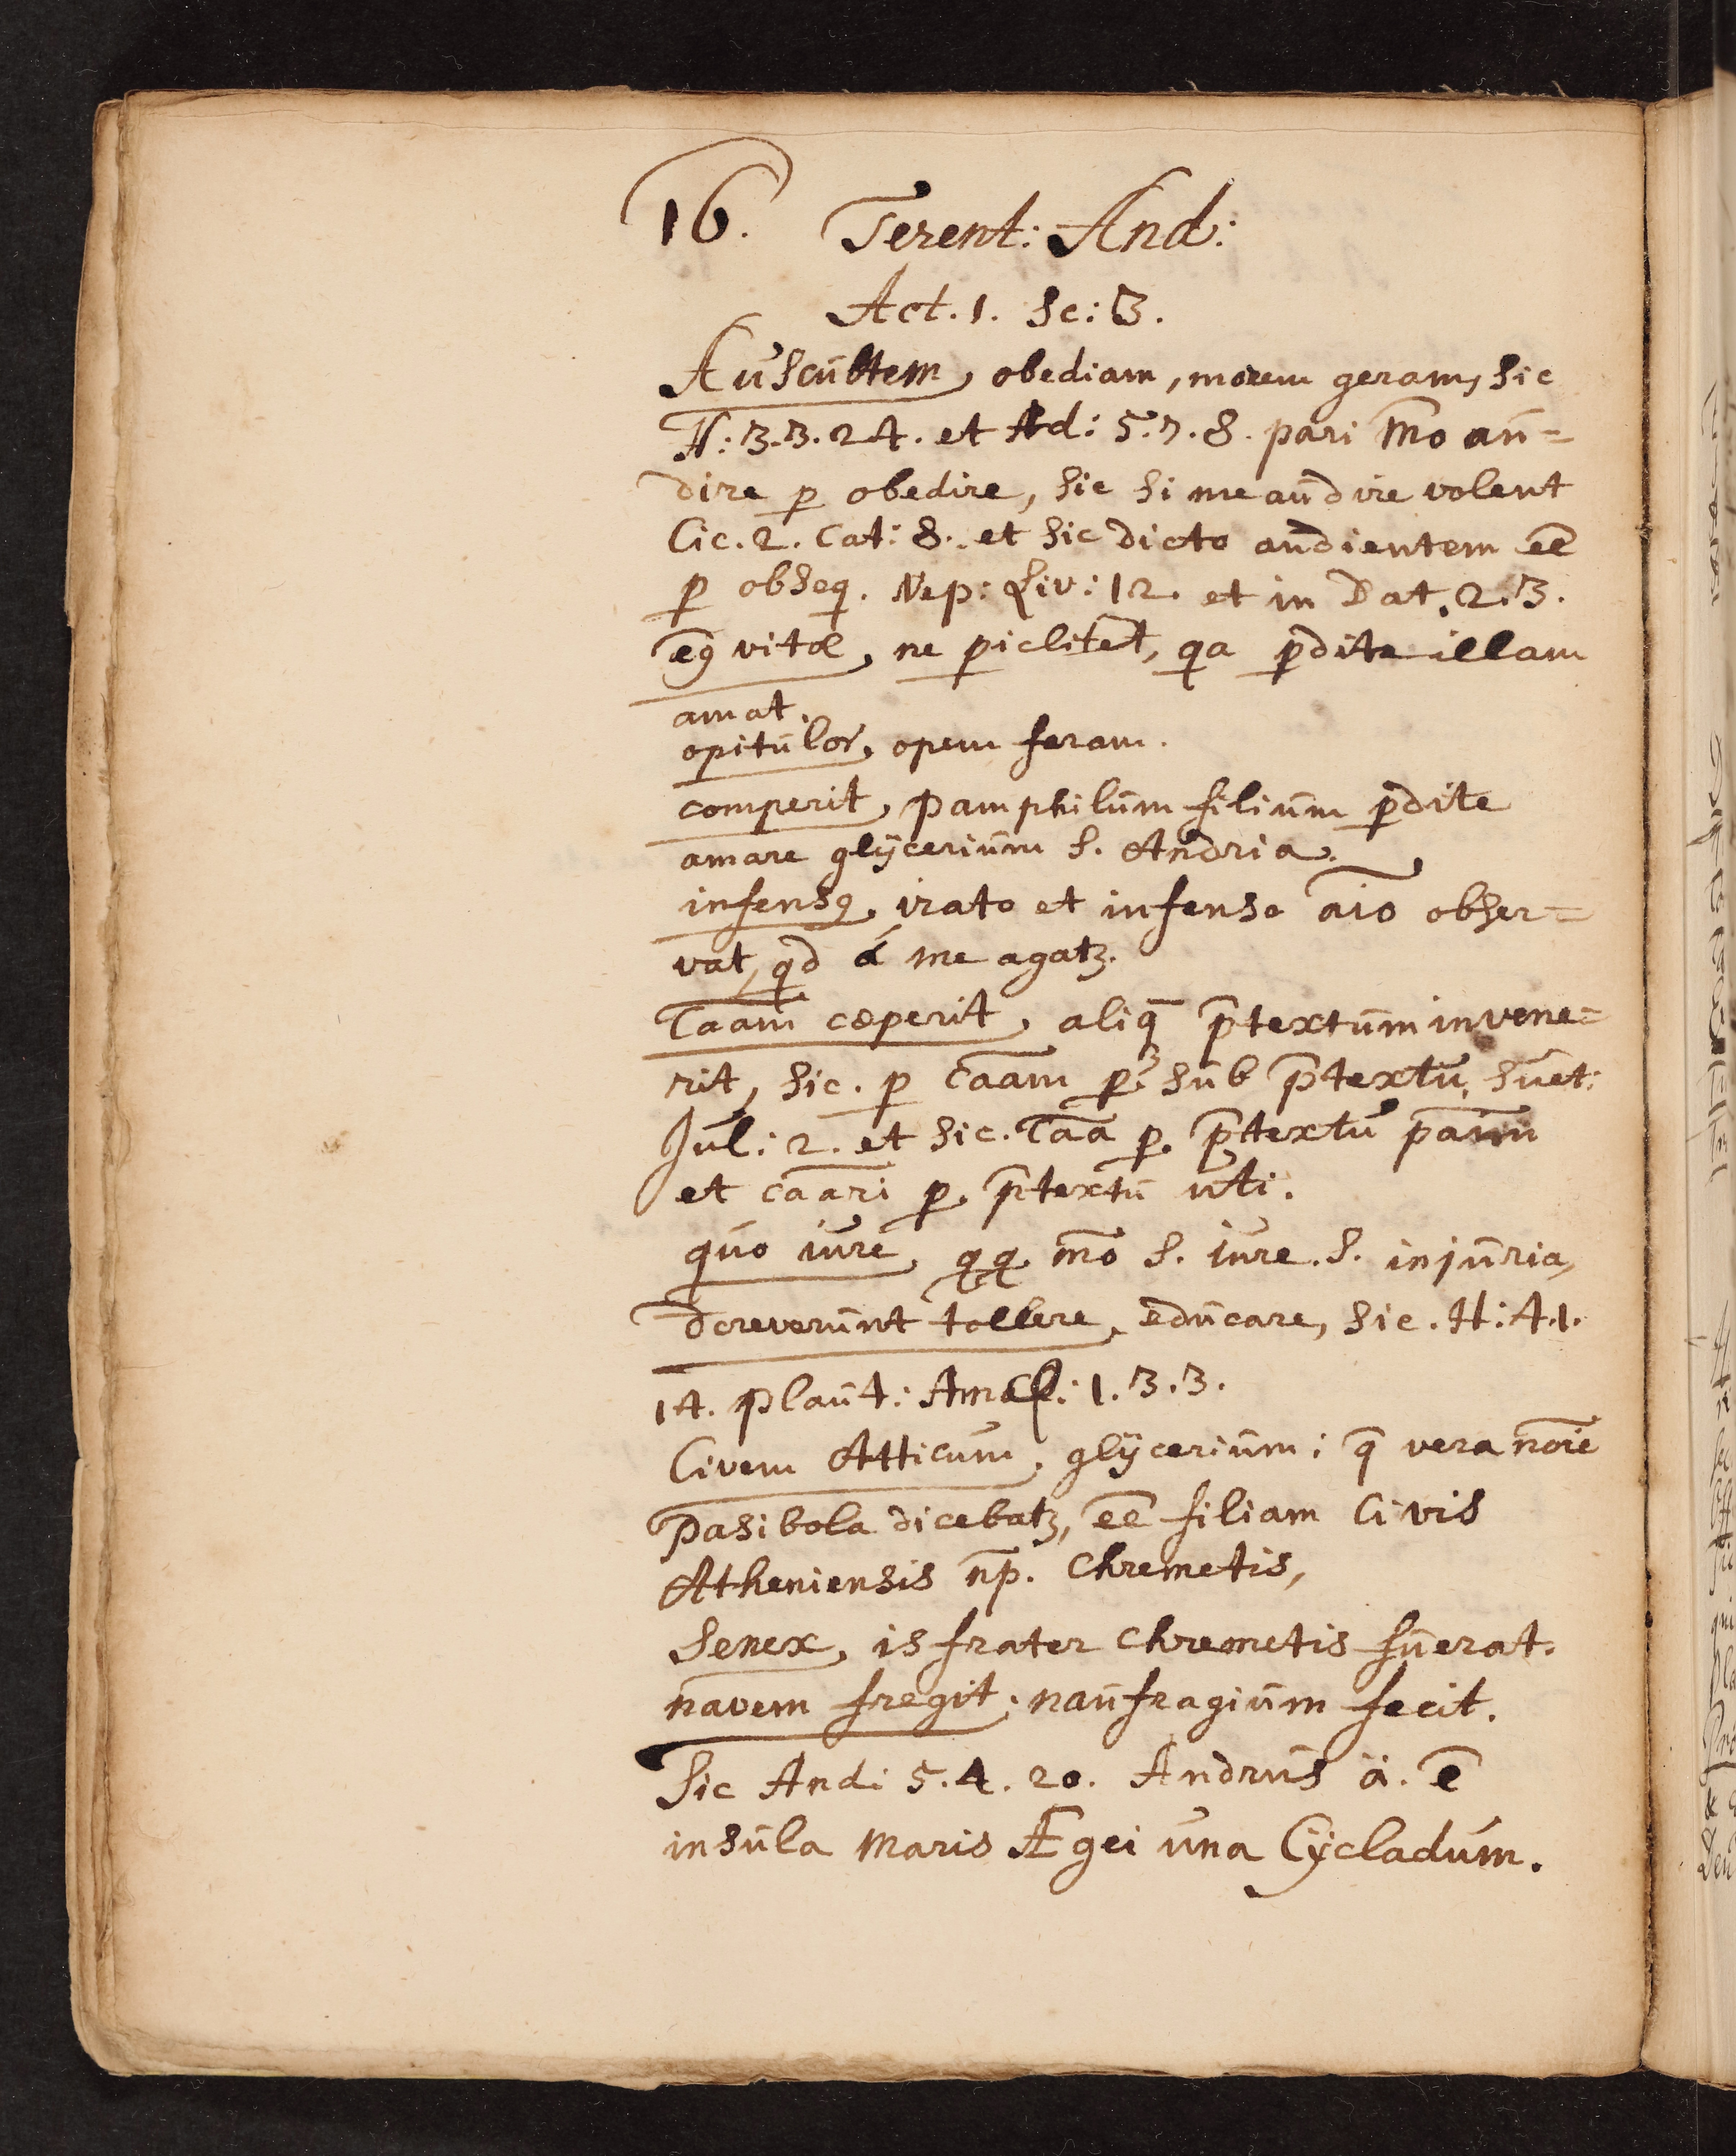 16. Terent: And:
Act. 1. Sc: 3.
Auscultem, obediam, morem geram, sic
H: 3.3.24. et Ad: 5.7.8. pari m̄o au=
dire p obedire, sic si me audire volent
Cic. 2. Cat: 8. et sic dicto audientem ēē
p obseq. Nep: Liv: 12. et in Dat. 2.3.
ej9 vitæ, ne piclitet, qa pdite illam
amat.
opitulor, opem feram.
comperit, Pamphilum filium pdite
amare glÿcerium S. Andria.
infens9, irato et infenso āio obser=
vat, qd á me agatꝫ.
Cāām cœperit, aliq̄ p̄textum invene=
rit, sic. p cāām p. sub p̄textu, Suet:
Jul: 2. et sic. Cāā p. p̄textu
et cāāri p. p̄textu uti.
quo iure, qq m̄o S. iure. S. injuria,
dcreverunt tollere, educare, sic. H: 4.1.
14. Plaut: Amph: 1.3.3.
Civem Atticum, glÿcerium: q̄ vera nōīe
Pasibola dicebatꝫ, ēē filiam Civis
Atheniensis n̄p. Chremetis,
Senex, is frater Chremetis fuerat.
navem fregit, naufragium fecit.
Sic And: 5.4.20. Andrus ä. ē
insula maris Ægei una Cÿcladum.